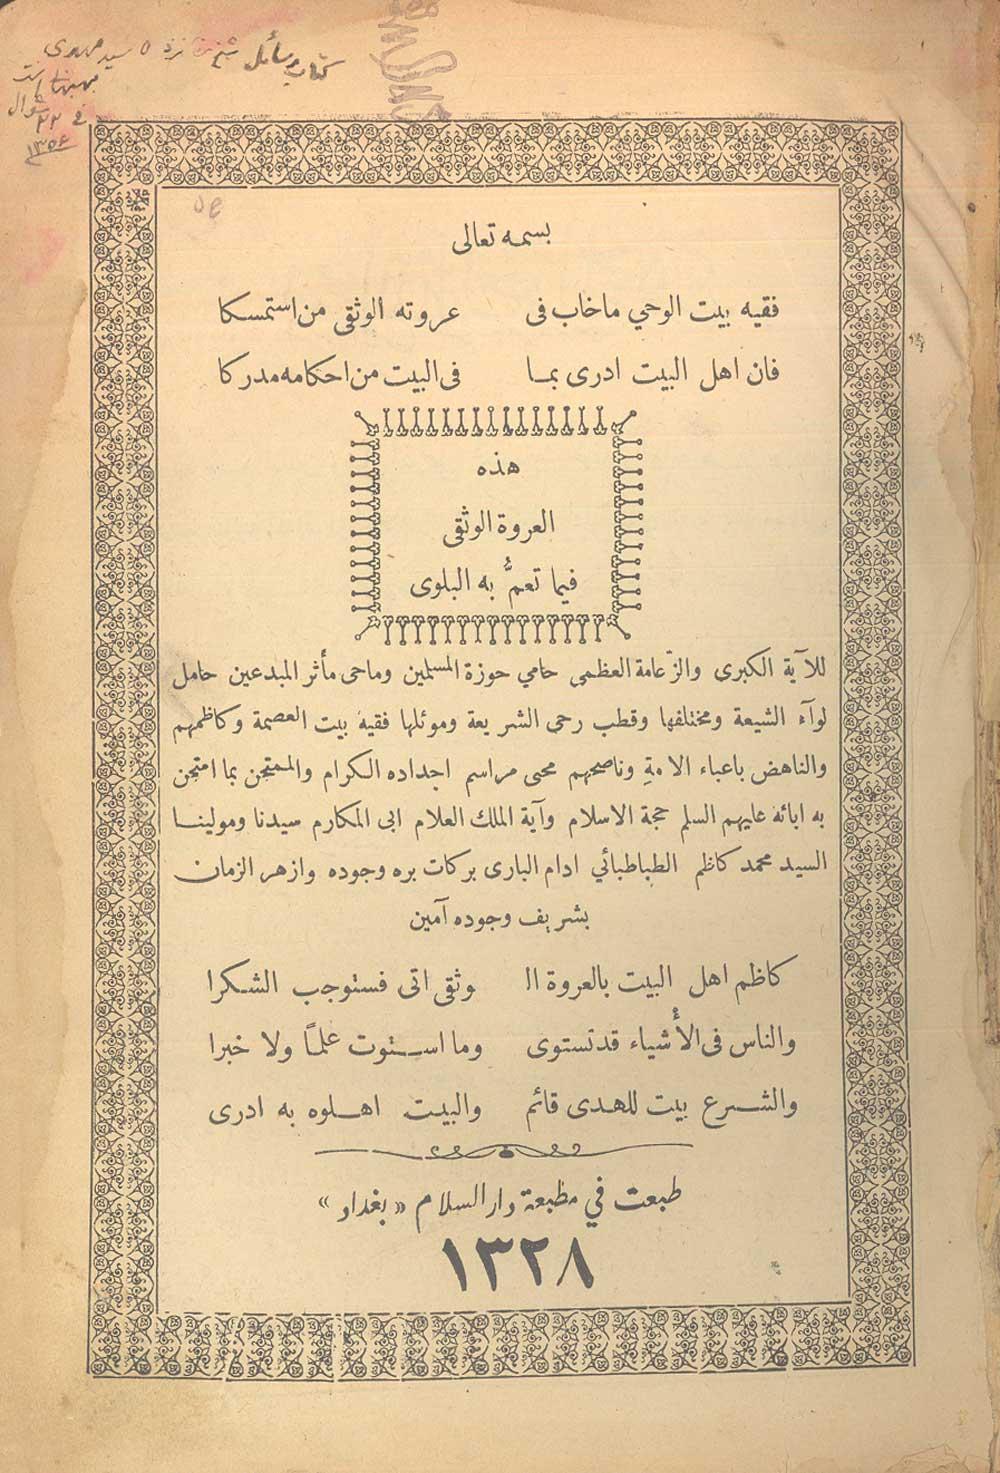 کتاب رسائل شیخ نزد سید مهدی
بهبهانی است
فی ۲۲ شوال
۱۳۵۶
بسمه تعالى
فقيه بيت الوحي ماخاب فى عروته الوثقى من استمسكا
فان اهل البيت ادرى بما فى البيت من احكامه مدركا
هذه
العروة الوثقى
فيما تعمُّ به البلوى
للآية الكبرى والزّعامة العظمى حامي حوزة المسلمين وماحى مأثر المبدعين حامل
لوآء الشيعة ومختلفها وقطب رحى الشريعة وموئلها فقيه بيت العصمة وكاظمهم
والناهض باعباء الامةِ وناصحهم محيى مراسم اجداده الكرام والممتحن بما امتحن
به ابائه عليهم السلم حجة الاسلام وآية الملك العلام ابى المكارم سيدنا ومولينا
السيد محمد كاظم الطباطبائي ادام البارى بركات بره وجوده وازهر الزمان
بشريف وجوده آمين
كاظم اهل البيت بالعروة ال وثقى اتى فستوجب الشكرا
والناس فى الأشياء قد تستوى وما استوت علمًا ولا خبرا
والشرع بيت للهدى قائم والبيت اهلوه به ادرى
طبعت في مطبعة دار السلام «بغداد»
١٣٢٨